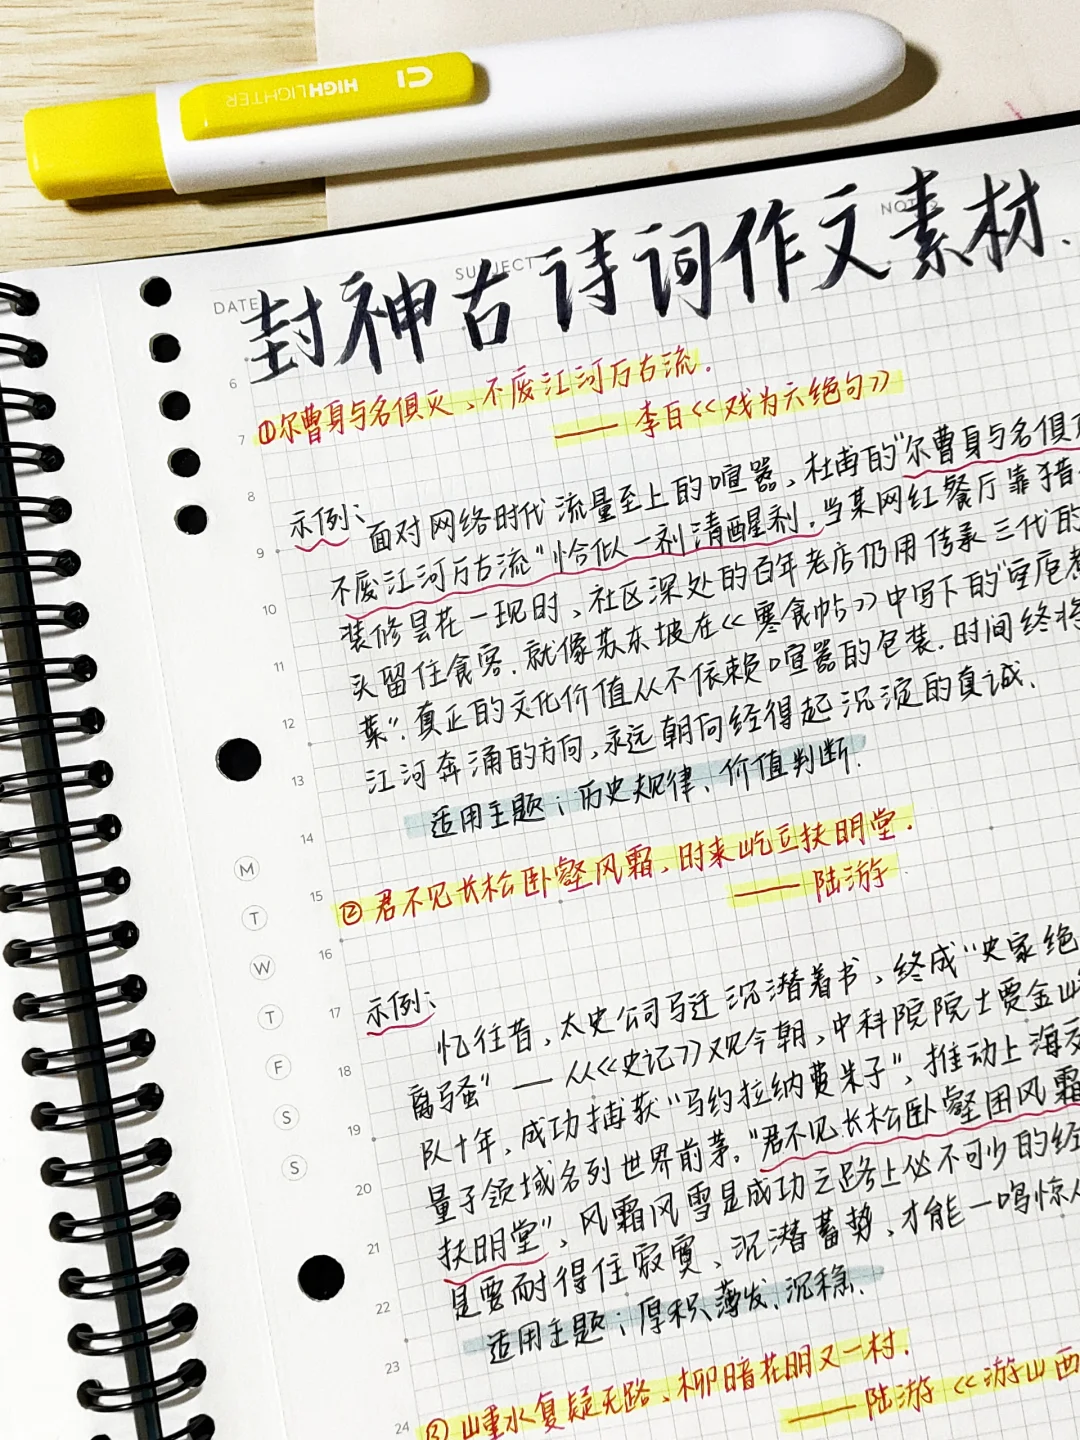 CI HIGHLIGHTER
NOTES
SUBJECT
DATE
封神古诗词作文素材.
6
①尔曹身与名俱灭、不废江河万古流.
7
——李白《戏为六绝句》
8
示例:
面对网络时代流量至上的喧嚣、杜甫的"尔曹身与名俱
9
不废江河万古流"恰似一剂清醒剂.当某网红餐厅靠猎
10
装修昙花一现时,社区深处的百年老店仍用传承三代的
11
头留住食客.就像苏东坡在《寒食帖》中写下的"空庖煮
12
菜".真正的文化价值从不依赖喧嚣的包装.时间终将
13
江河奔涌的方向,永远朝向经得起沉淀的真诚.
适用主题:历史规律、价值判断.
14
15
②君不见长松卧壑风霜,时来屹立扶明堂.
——陆游
16
17
示例:
忆往昔,太史公司马迁沉潜着书、终成"史家绝
18
离骚"—从《史记》观今朝,中科院院士贾金
19
队十年,成功捕获"马约拉纳费米子",推动上海交
20
量子领域名列世界前茅。"君不见长松卧壑困风霜
21
扶明堂",风霜风雪是成功之路上必不可少的经
22
是要耐得住寂寞、沉潜蓄势、才能一鸣惊人
适用主题:厚积薄发、沉稳.
23
③山重水复疑无路、柳暗花明又一村.
24
——陆游《游山西
M
T
W
T
F
S
S